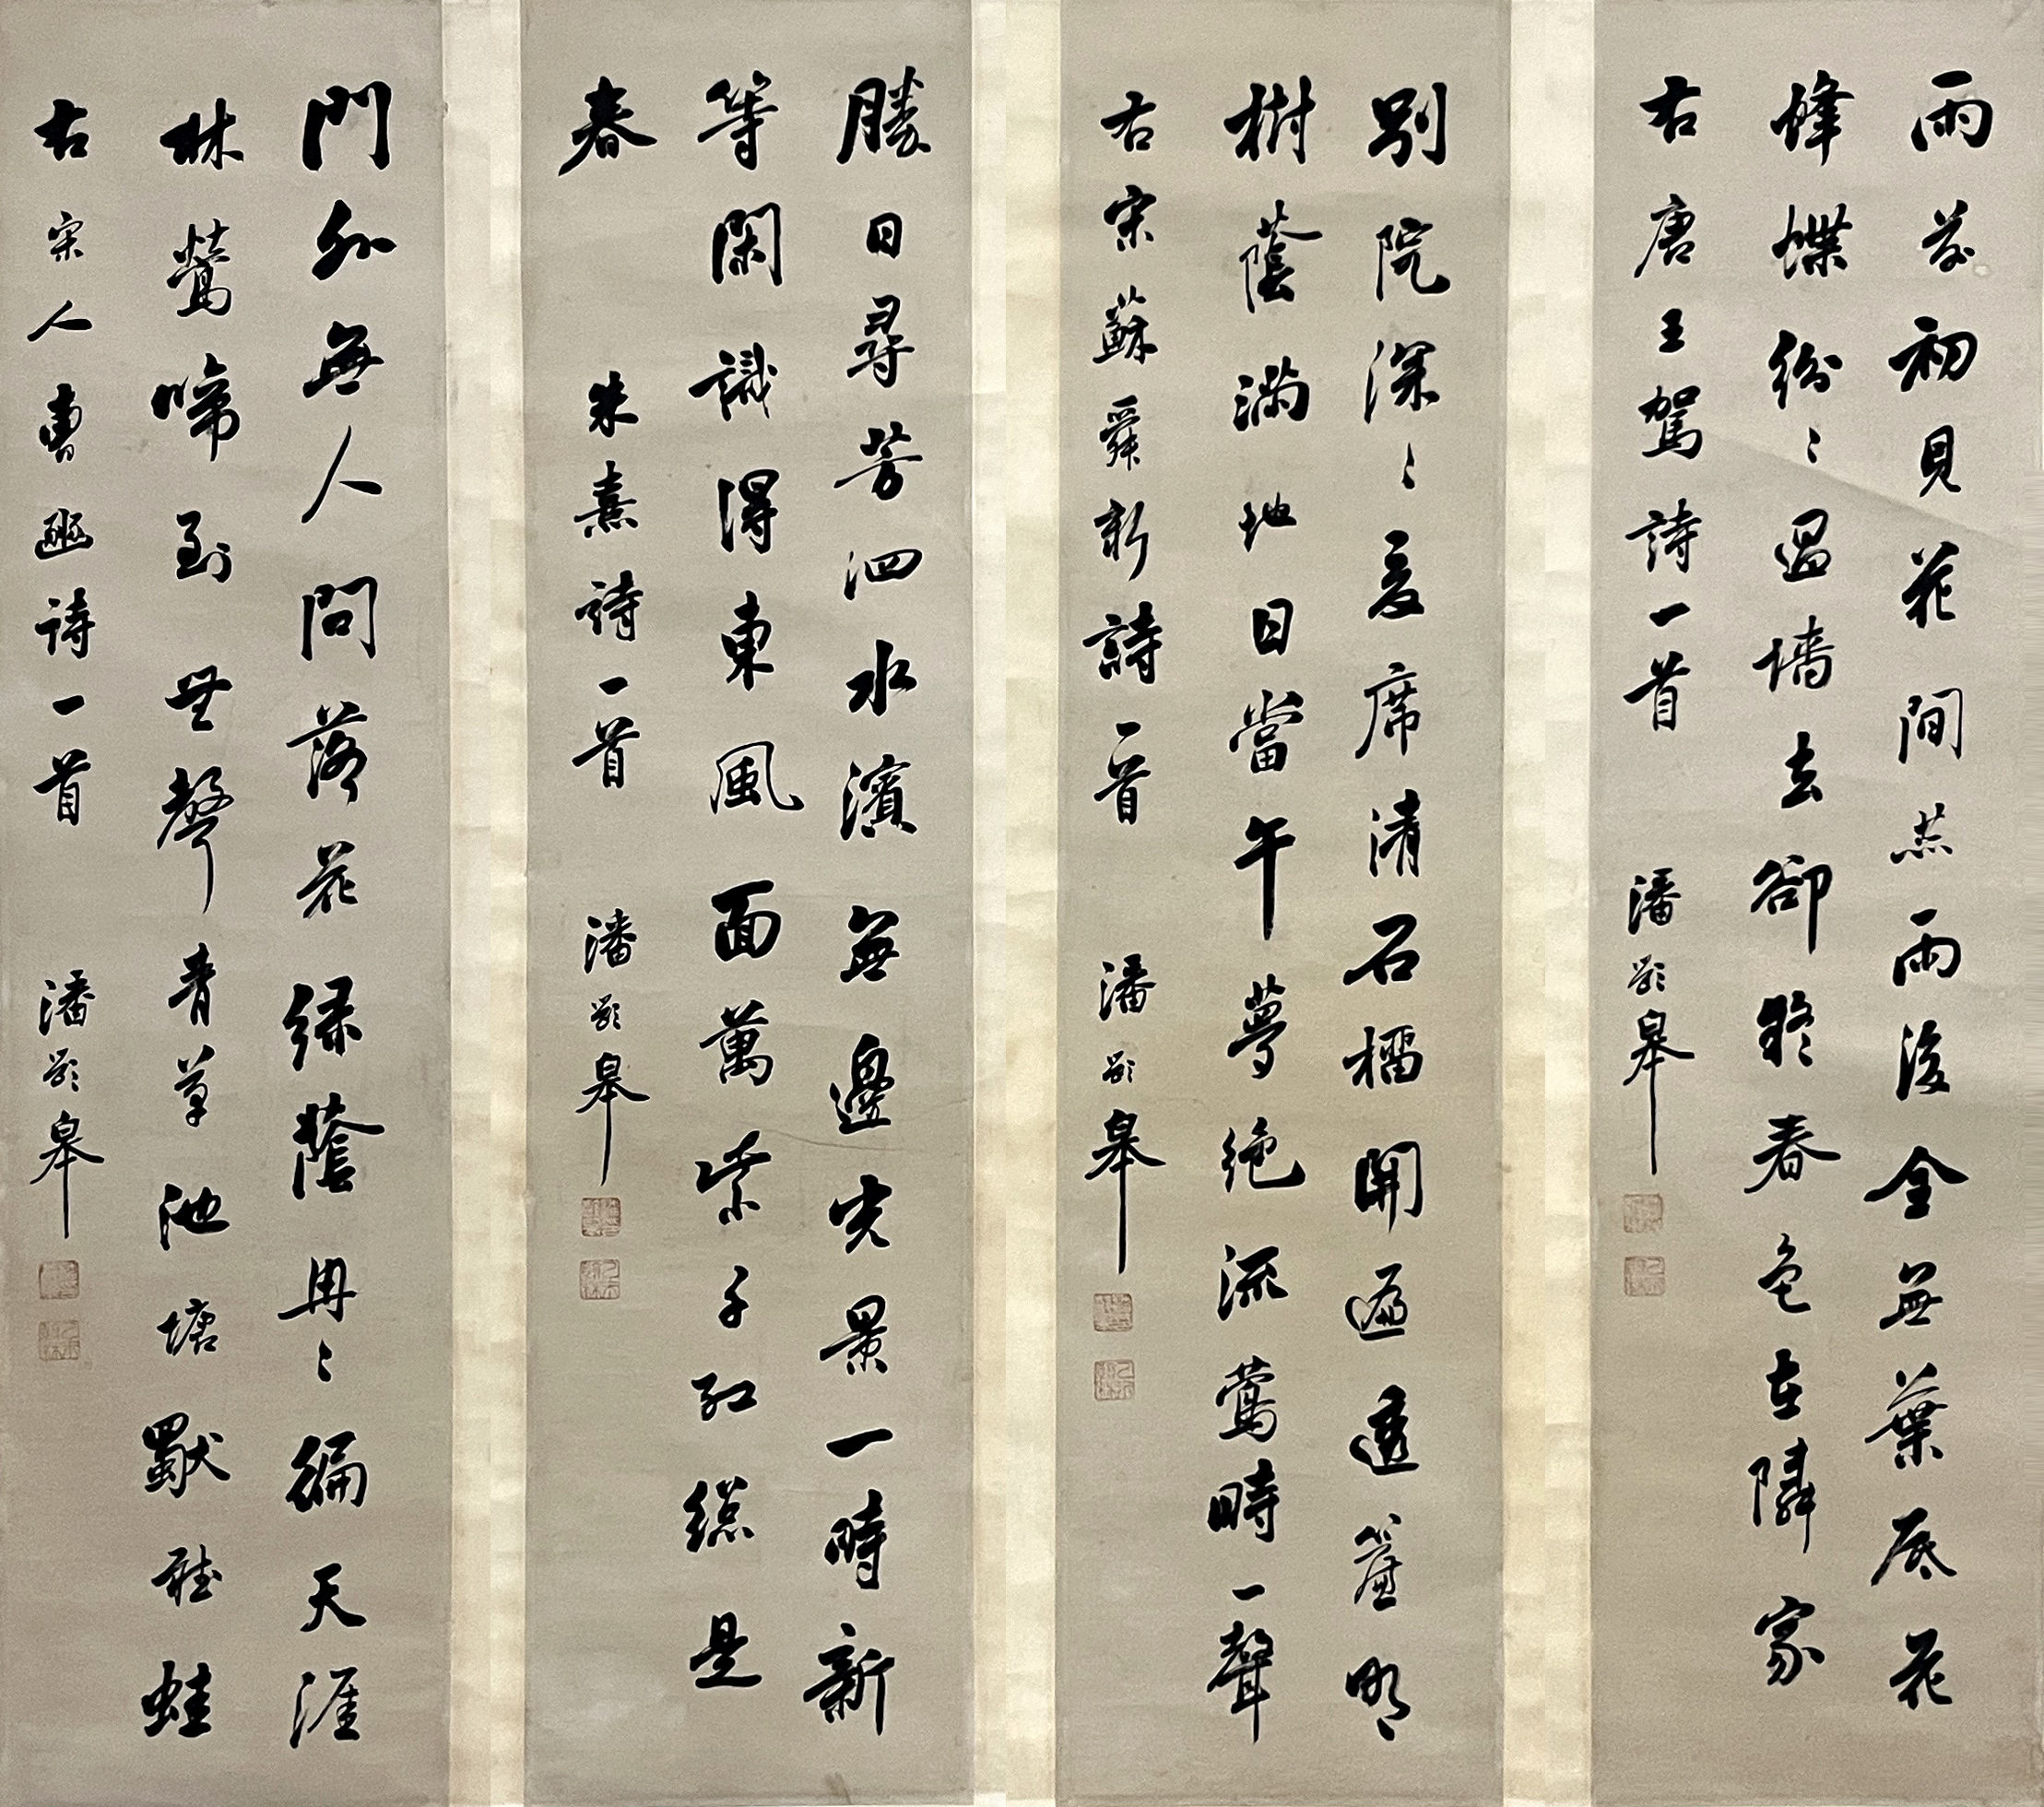 雨前初見花間蕊雨後全無葉底花
蜂蝶紛〻過墻去卻疑春色在隣家
右唐王駕詩一首　潘齡皋
別院深〻夏席清石榴開遍透簾明
樹蔭滿地日當午夢絶流鶯時一聲
右宋蘇舜新詩一首　潘齡皋
勝日尋芳泗水濱無邊光景一時新
等閑識得東風面萬紫千紅總是
春　朱熹詩一首　潘齡皋
門外無人問落花緑蔭冉〻編天涯
林鶯啼到無聲青草池塘獨聽蛙
右宋人曹豳詩一首　潘齡皋